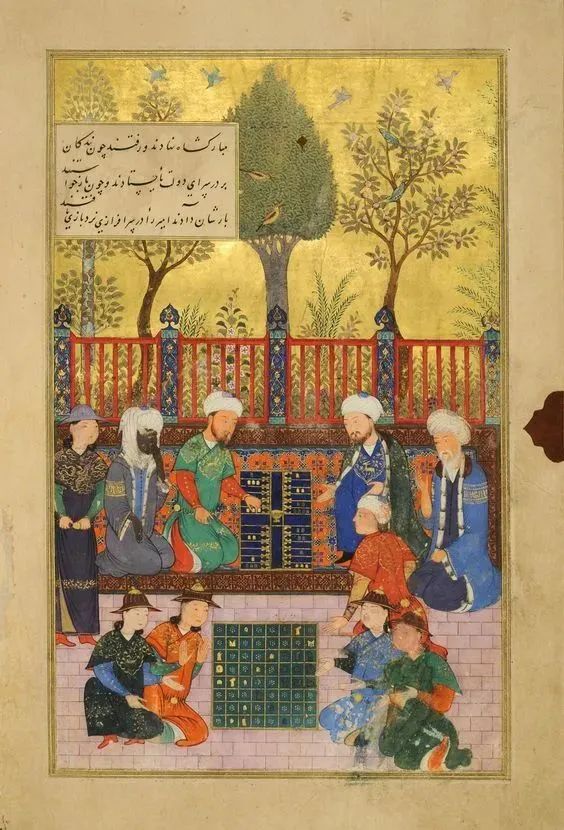 مبارکشاه نهادند و رفتند چون بندکان
بر در سرای دولت بایستادند و چون بار خواستند
بارشان دادند امیر را در سرافرازی نرد بازی